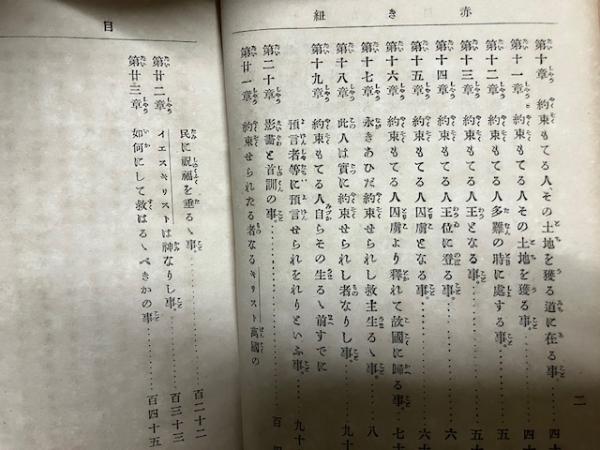 赤き紐
二
第十章 約束もてる人、その土地を獲る道に在る事。…… 四十
第十一章 約束もてる人その土地を獲る事。…… 四十
第十二章 約束もてる人多難の時に處する事。…… 五十
第十三章 約束もてる人王となる事。…… 五十
第十四章 約束もてる人王位に登る事。…… 六
第十五章 約束もてる人囚虜となる事。…… 六十
第十六章 約束もてる人囚虜より釋れて故國に歸る事。 七十
第十七章 永きあひだ約束せられし救主生るゝ事。…… 八
第十八章 此人は實に約束せられし者なりし事。…… 九十
第十九章 約束もてる人自らその生るゝ前すでに
預言者等に預言せられをれりといふ事。…… 九十
第二十章 影畫と首訓の事。…… 百
第廿一章 約束せられたる者なるキリスト萬國の
目
民に祝福を垂るゝ事。…… 百二十二
第廿二章 イエスキリストは神なりし事。…… 百三十三
第廿三章 如何にして救はるゝべきかの事。…… 百四十五